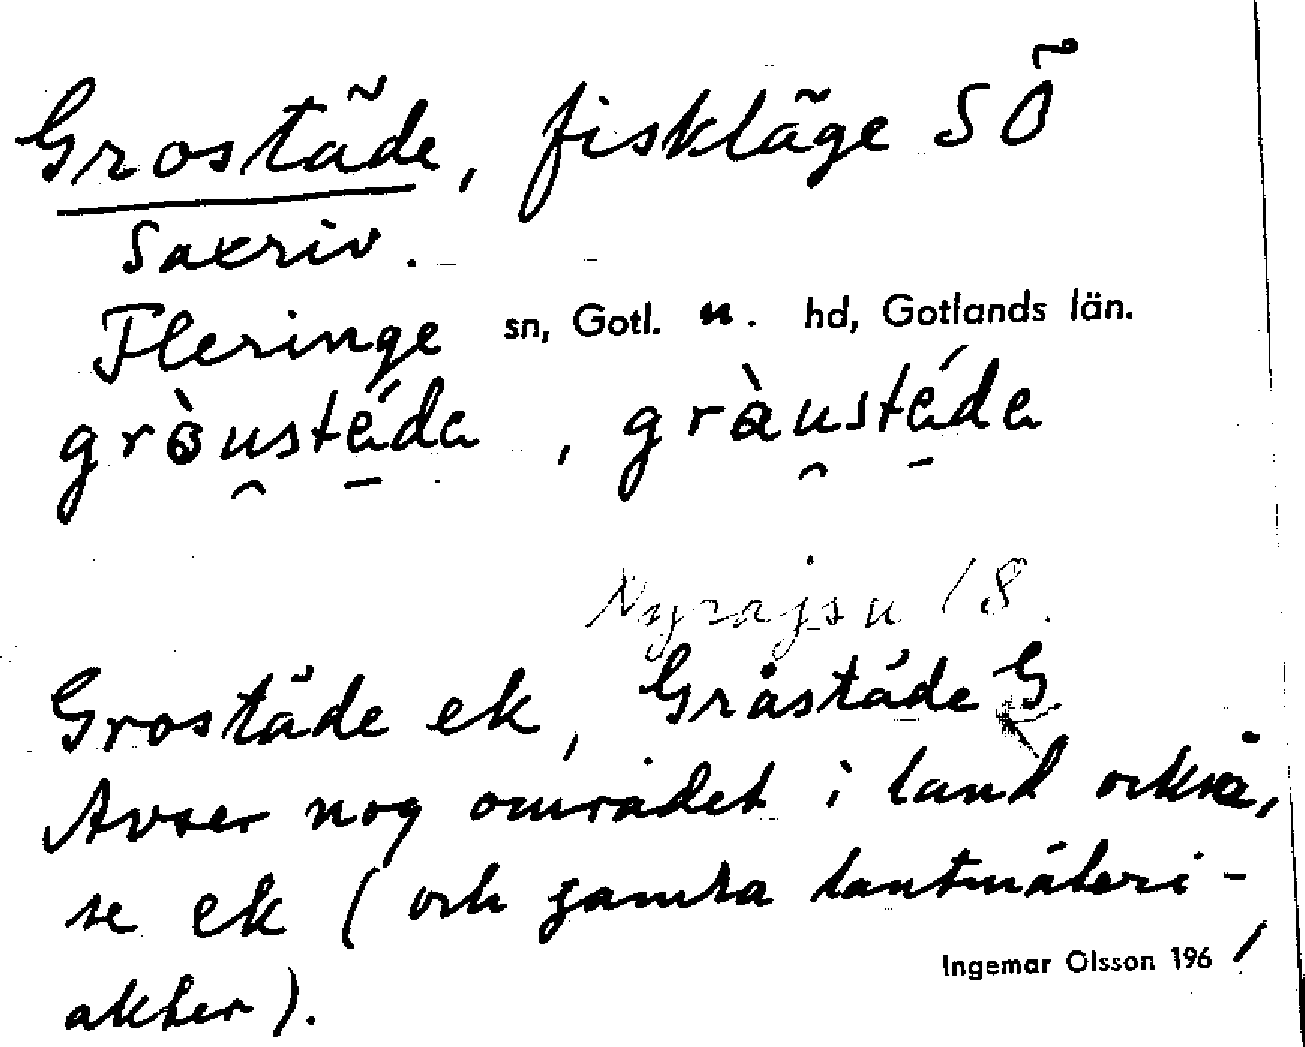 Grostäde, fiskläge SÖ
Saxriv.
Fleringe sn, Gotl. n. hd, Gotlands län.
gròu̯stéda, gràu̯stéda
Nyrajsu 18.
Grostäde ek, Gråstäde G
Avser nog området i land också,
se ek (och gamla lantmäteri-
akter).
Ingemar Olsson 1961